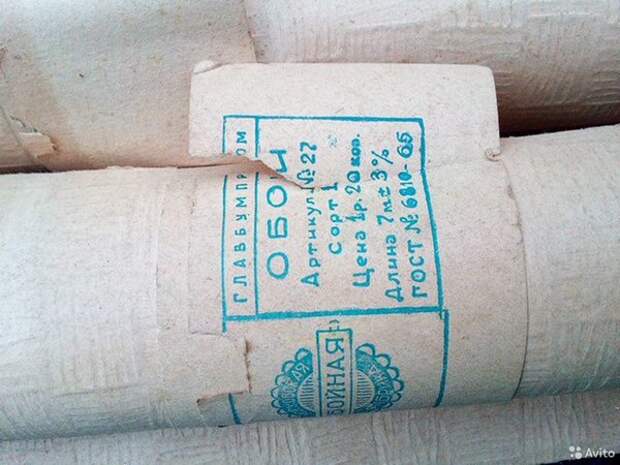 ГЛАВБУМПРОМ
ОБОИ
Артикул № 27
сорт 1
Цена 1р. 20 коп.
Длина 7м ± 3%
ГОСТ № 6810-65
Avito